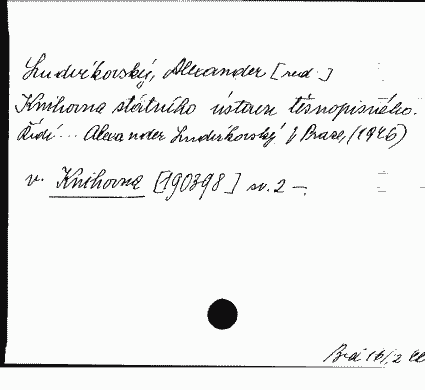 Ludvíkovský, Alexander [red.]
Knihovna státního ústavu těsnopisného.
Řídí ... Alexander Ludvíkovský v Praze, (1946)
v. Knihovna [190398] sv. 2 –.
16/2